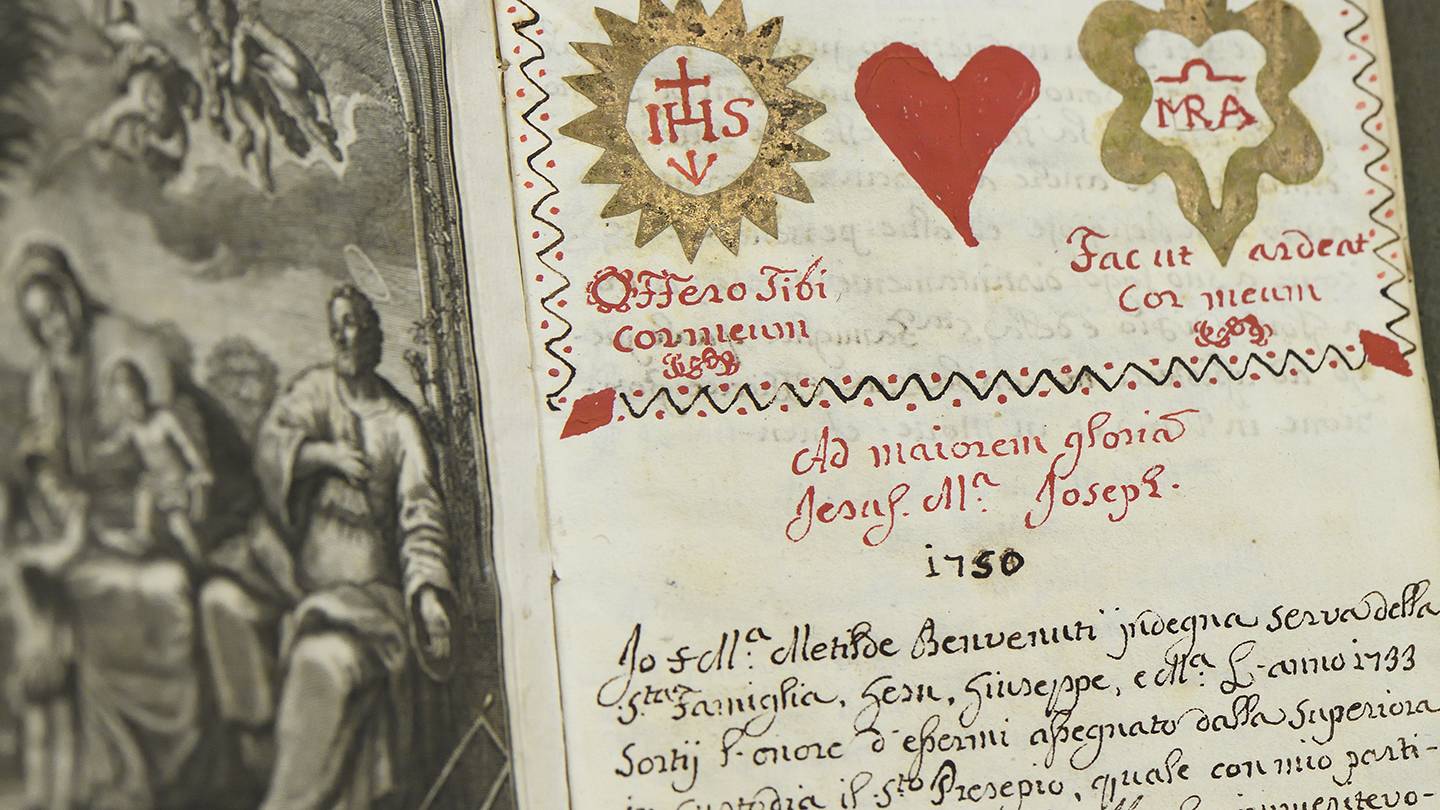 IHS
MRA
Offero Tibi
cor meum
Fac ut ardeat
cor meum
Ad maiorem gloriã
Jesus. M.ª Joseph.
1750
Io S M.ª Metilde Benvenuti indegna serva della
S.ta Famiglia, Gesu, Giuseppe, e M.ª L'anno 1733
Sortij l'onore d'essermi assegnato dalla Superiora
in Custodia il S.to Presepio, quale con mio parti-